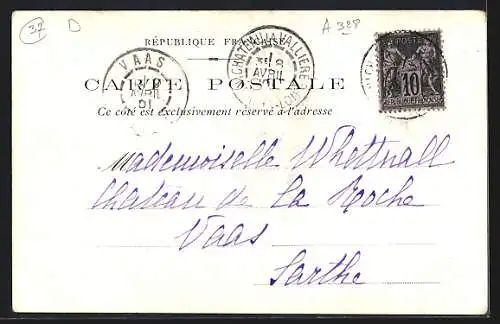 37 D A 328
RÉPUBLIQUE FRANÇAISE
VAAS
AVRIL
01
CHATEAU LA VALLIÈRE
AVRIL
POSTES
10
CARTE POSTALE
Ce côté est exclusivement réservé à l'adresse
Mademoiselle Whettnall
Chateau de La Roche
Vaas
Sarthe